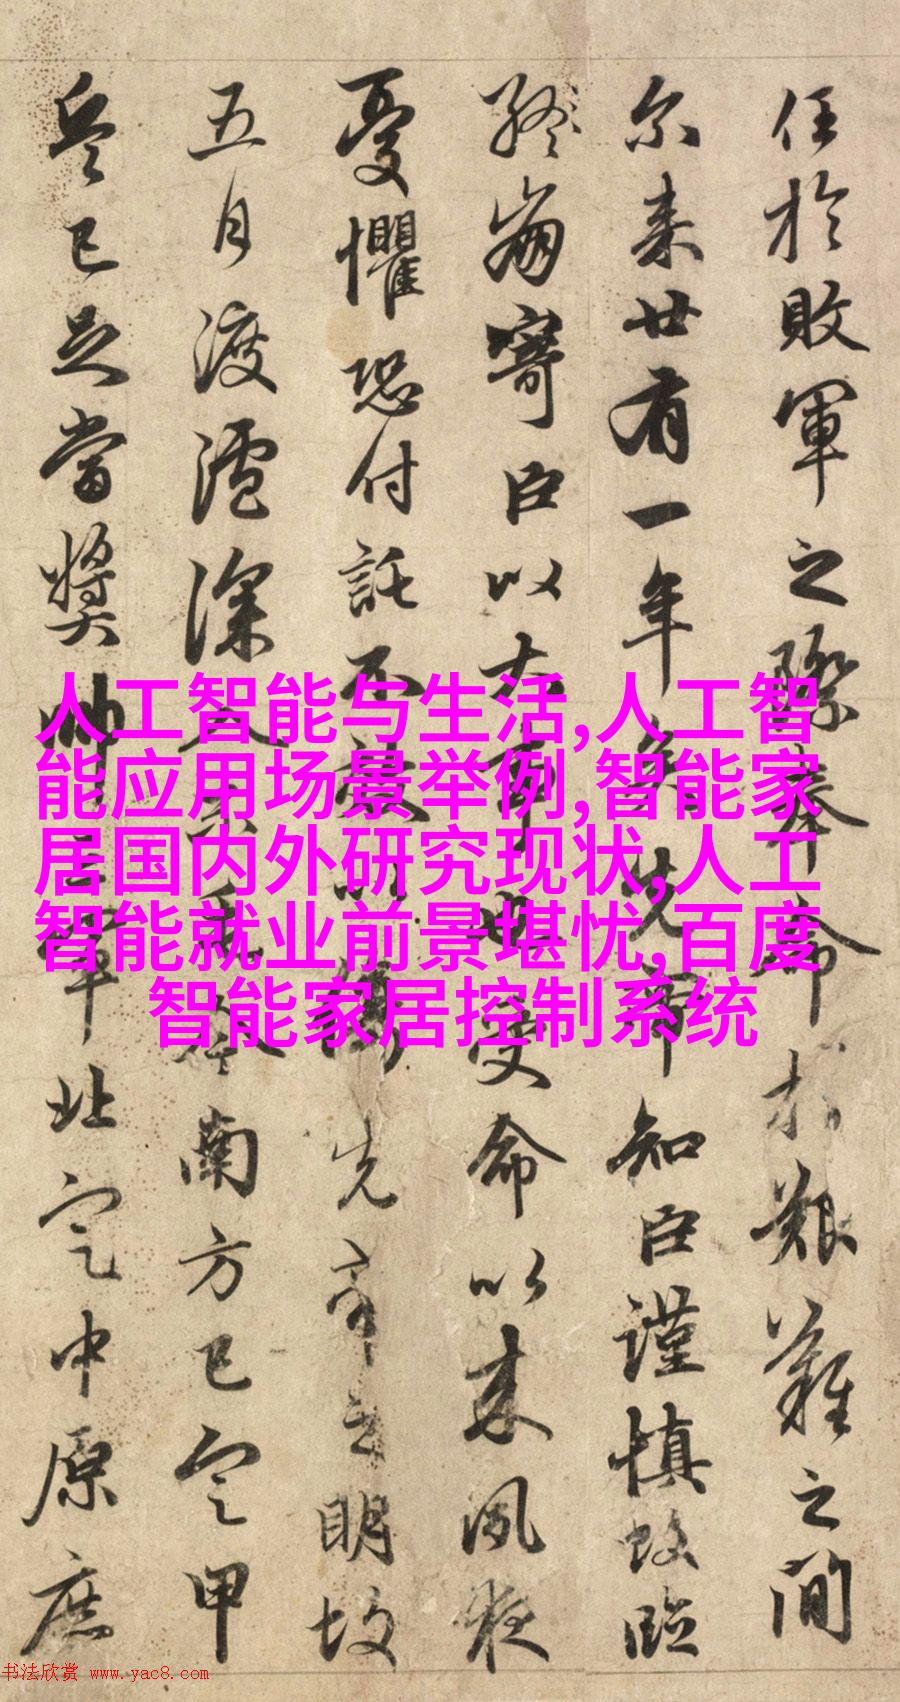 任於敗軍之際奉命於艱難之間
尔来廿有一年矣先帝知臣謹慎故臨
終崩寄臣以大事也受命以来夙夜
憂懼恐付託不效傷先帝之明故
五月渡瀘深入不毛今南方已定甲
兵已足當奬帥三軍北定中原庶
人工智能与生活,人工智
能应用场景举例,智能家
居国内外研究现状,人工
智能就业前景堪忧,百度
智能家居控制系统
书法欣赏 www.yac8.com